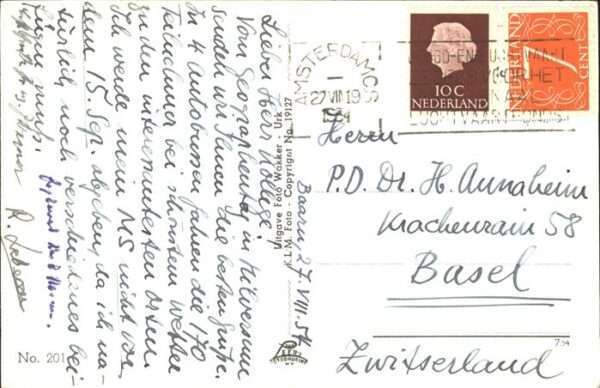 Baarn, 27. VIII. 54
Lieber Herr Kollege!
Vom Geographentag in Hilversum
senden wir Ihnen die besten Grüße.
In 4 Autobussen fahren die 170
Teilnehmer bei schönstem Wetter
zu den interessantesten Orten.
Ich werde mein MS nicht vor
dem 15. Sep. abgeben, da ich na-
türlich noch verschiedenes bei-
fügen muß.
R.
Uitgave Foto Wakker - Urk
J.L.M. Foto - Copyright No. 19127
No. 201
AMSTERDAM CS
27 VIII 19
1954
HET
LUCHTVAART
10 C
NEDERLAND
NEDERLAND
7
CENT
Herrn
P.D. Dr. H. Annaheim
Krachenrain 58
Basel
Zwitserland
754